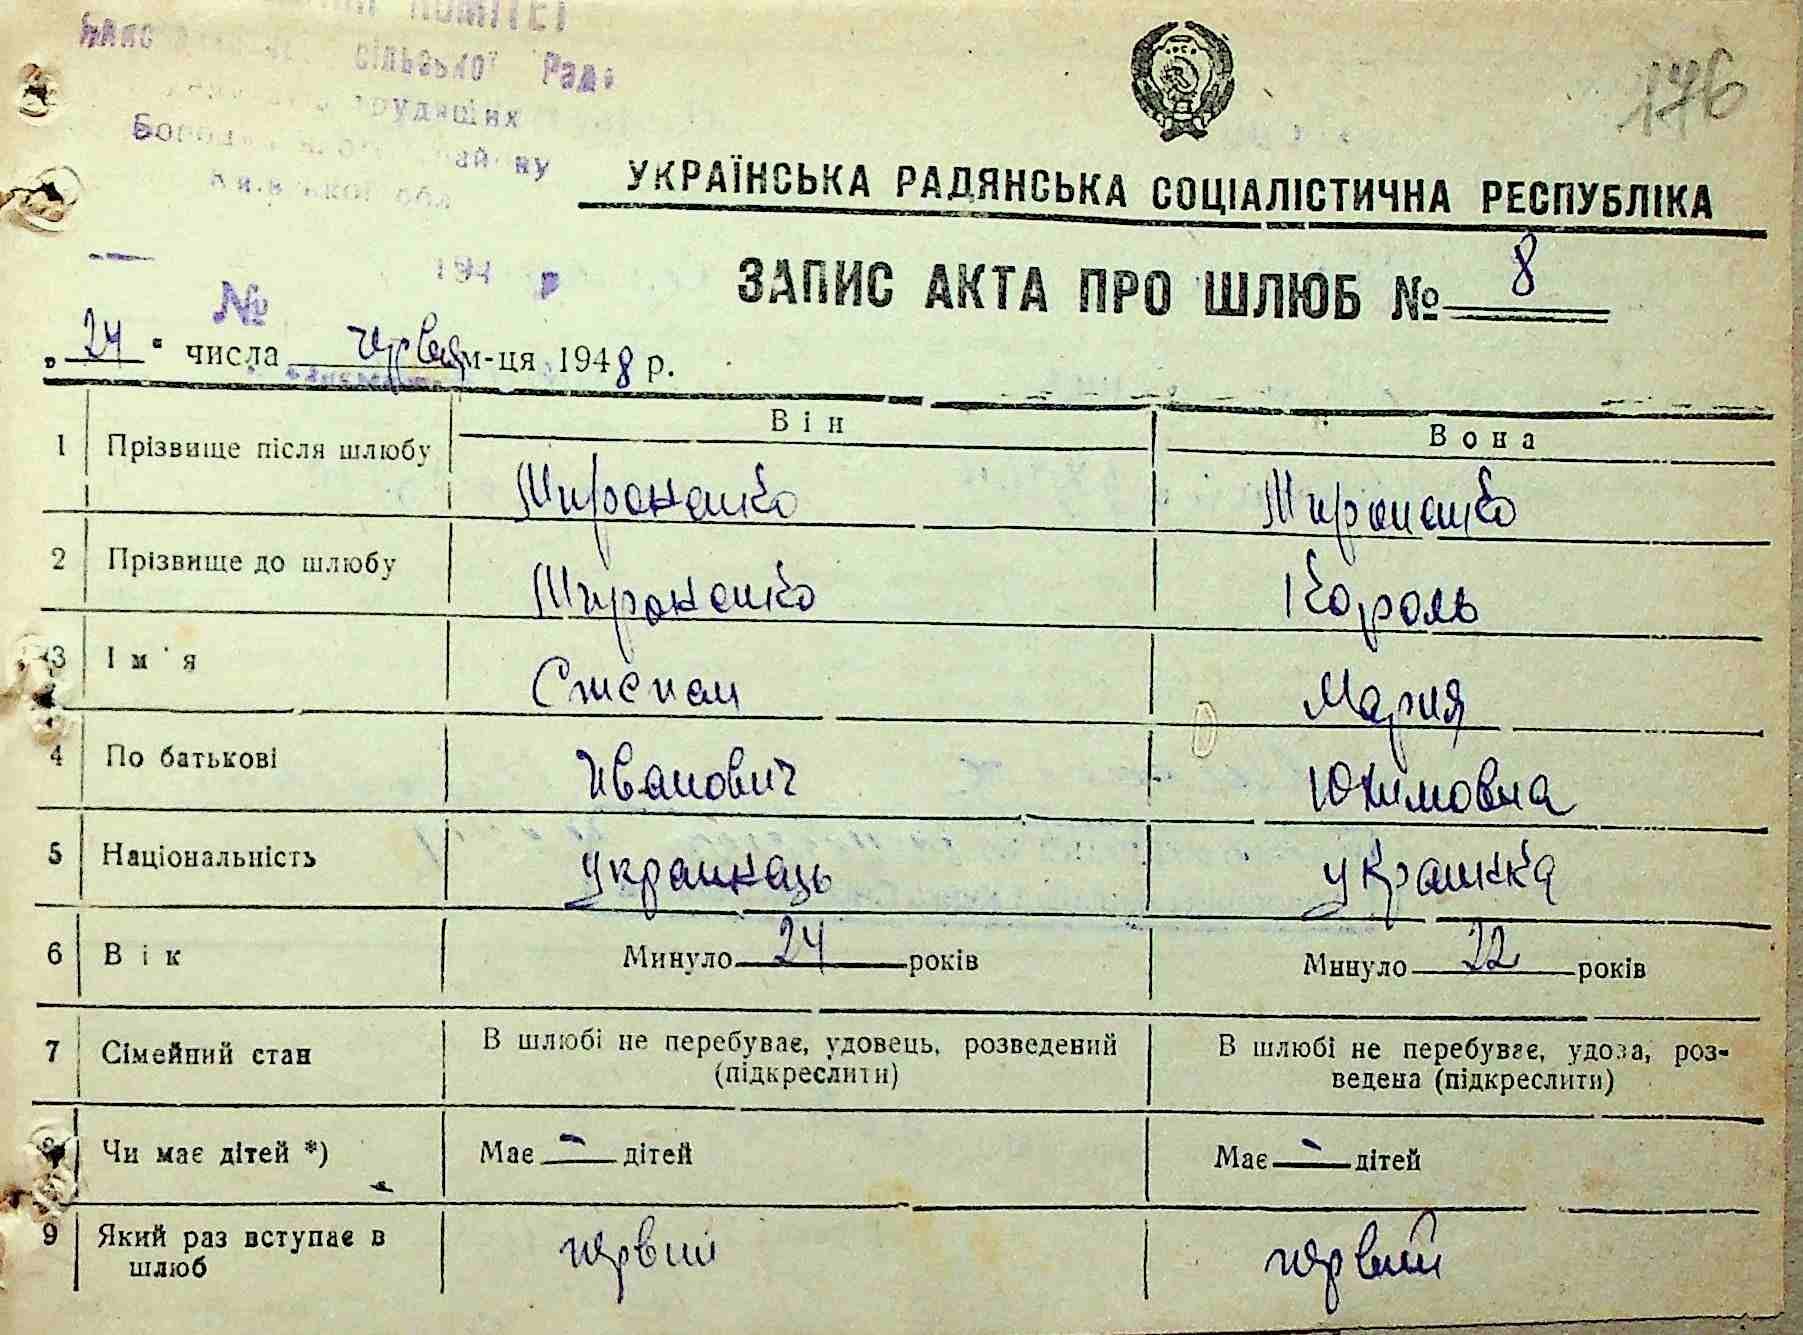 КОМІТЕТ
сільської Ради
трудящих
району
обл
176
УКРАЇНСЬКА РАДЯНСЬКА СОЦІАЛІСТИЧНА РЕСПУБЛІКА
194 р
№
ЗАПИС АКТА ПРО ШЛЮБ № 8
„24“ числа червня м-ця 1948 р.
Він
Вона
1 Прізвище після шлюбу Мироненко Мироненко
2 Прізвище до шлюбу Мироненко Король
3 Ім'я Степан Мария
4 По батькові Иванович Юхимовна
5 Національність украинець украинка
6 Вік Минуло 24 років Минуло 22 років
7 Сімейний стан В шлюбі не перебуває, удовець, розведений (підкреслити) В шлюбі не перебуває, удова, роз-
ведена (підкреслити)
8 Чи має дітей *) Має - дітей Має - дітей
9 Який раз вступає в шлюб первий первий